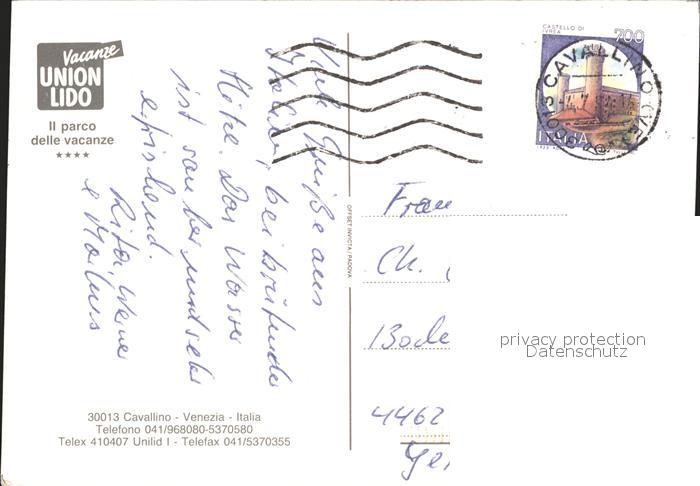 Vacanze
UNION
LIDO
Il parco
delle vacanze
★★★★
Viele Grüße aus
Italien, bei brütender
Hitze. Das Wasser
ist sauber und sehr
erfrischend.
Rita, Werner
e Markus
30013 Cavallino - Venezia - Italia
Telefono 041/968080-5370580
Telex 410407 Unilid I - Telefax 041/5370355
OFFSET INVICTA / PADOVA
CASTELLO DI
IVREA
700
ITALIA
CAVALLINO (VE)
Frau
Ch.
Bode
4462
privacy protection
Datenschutz